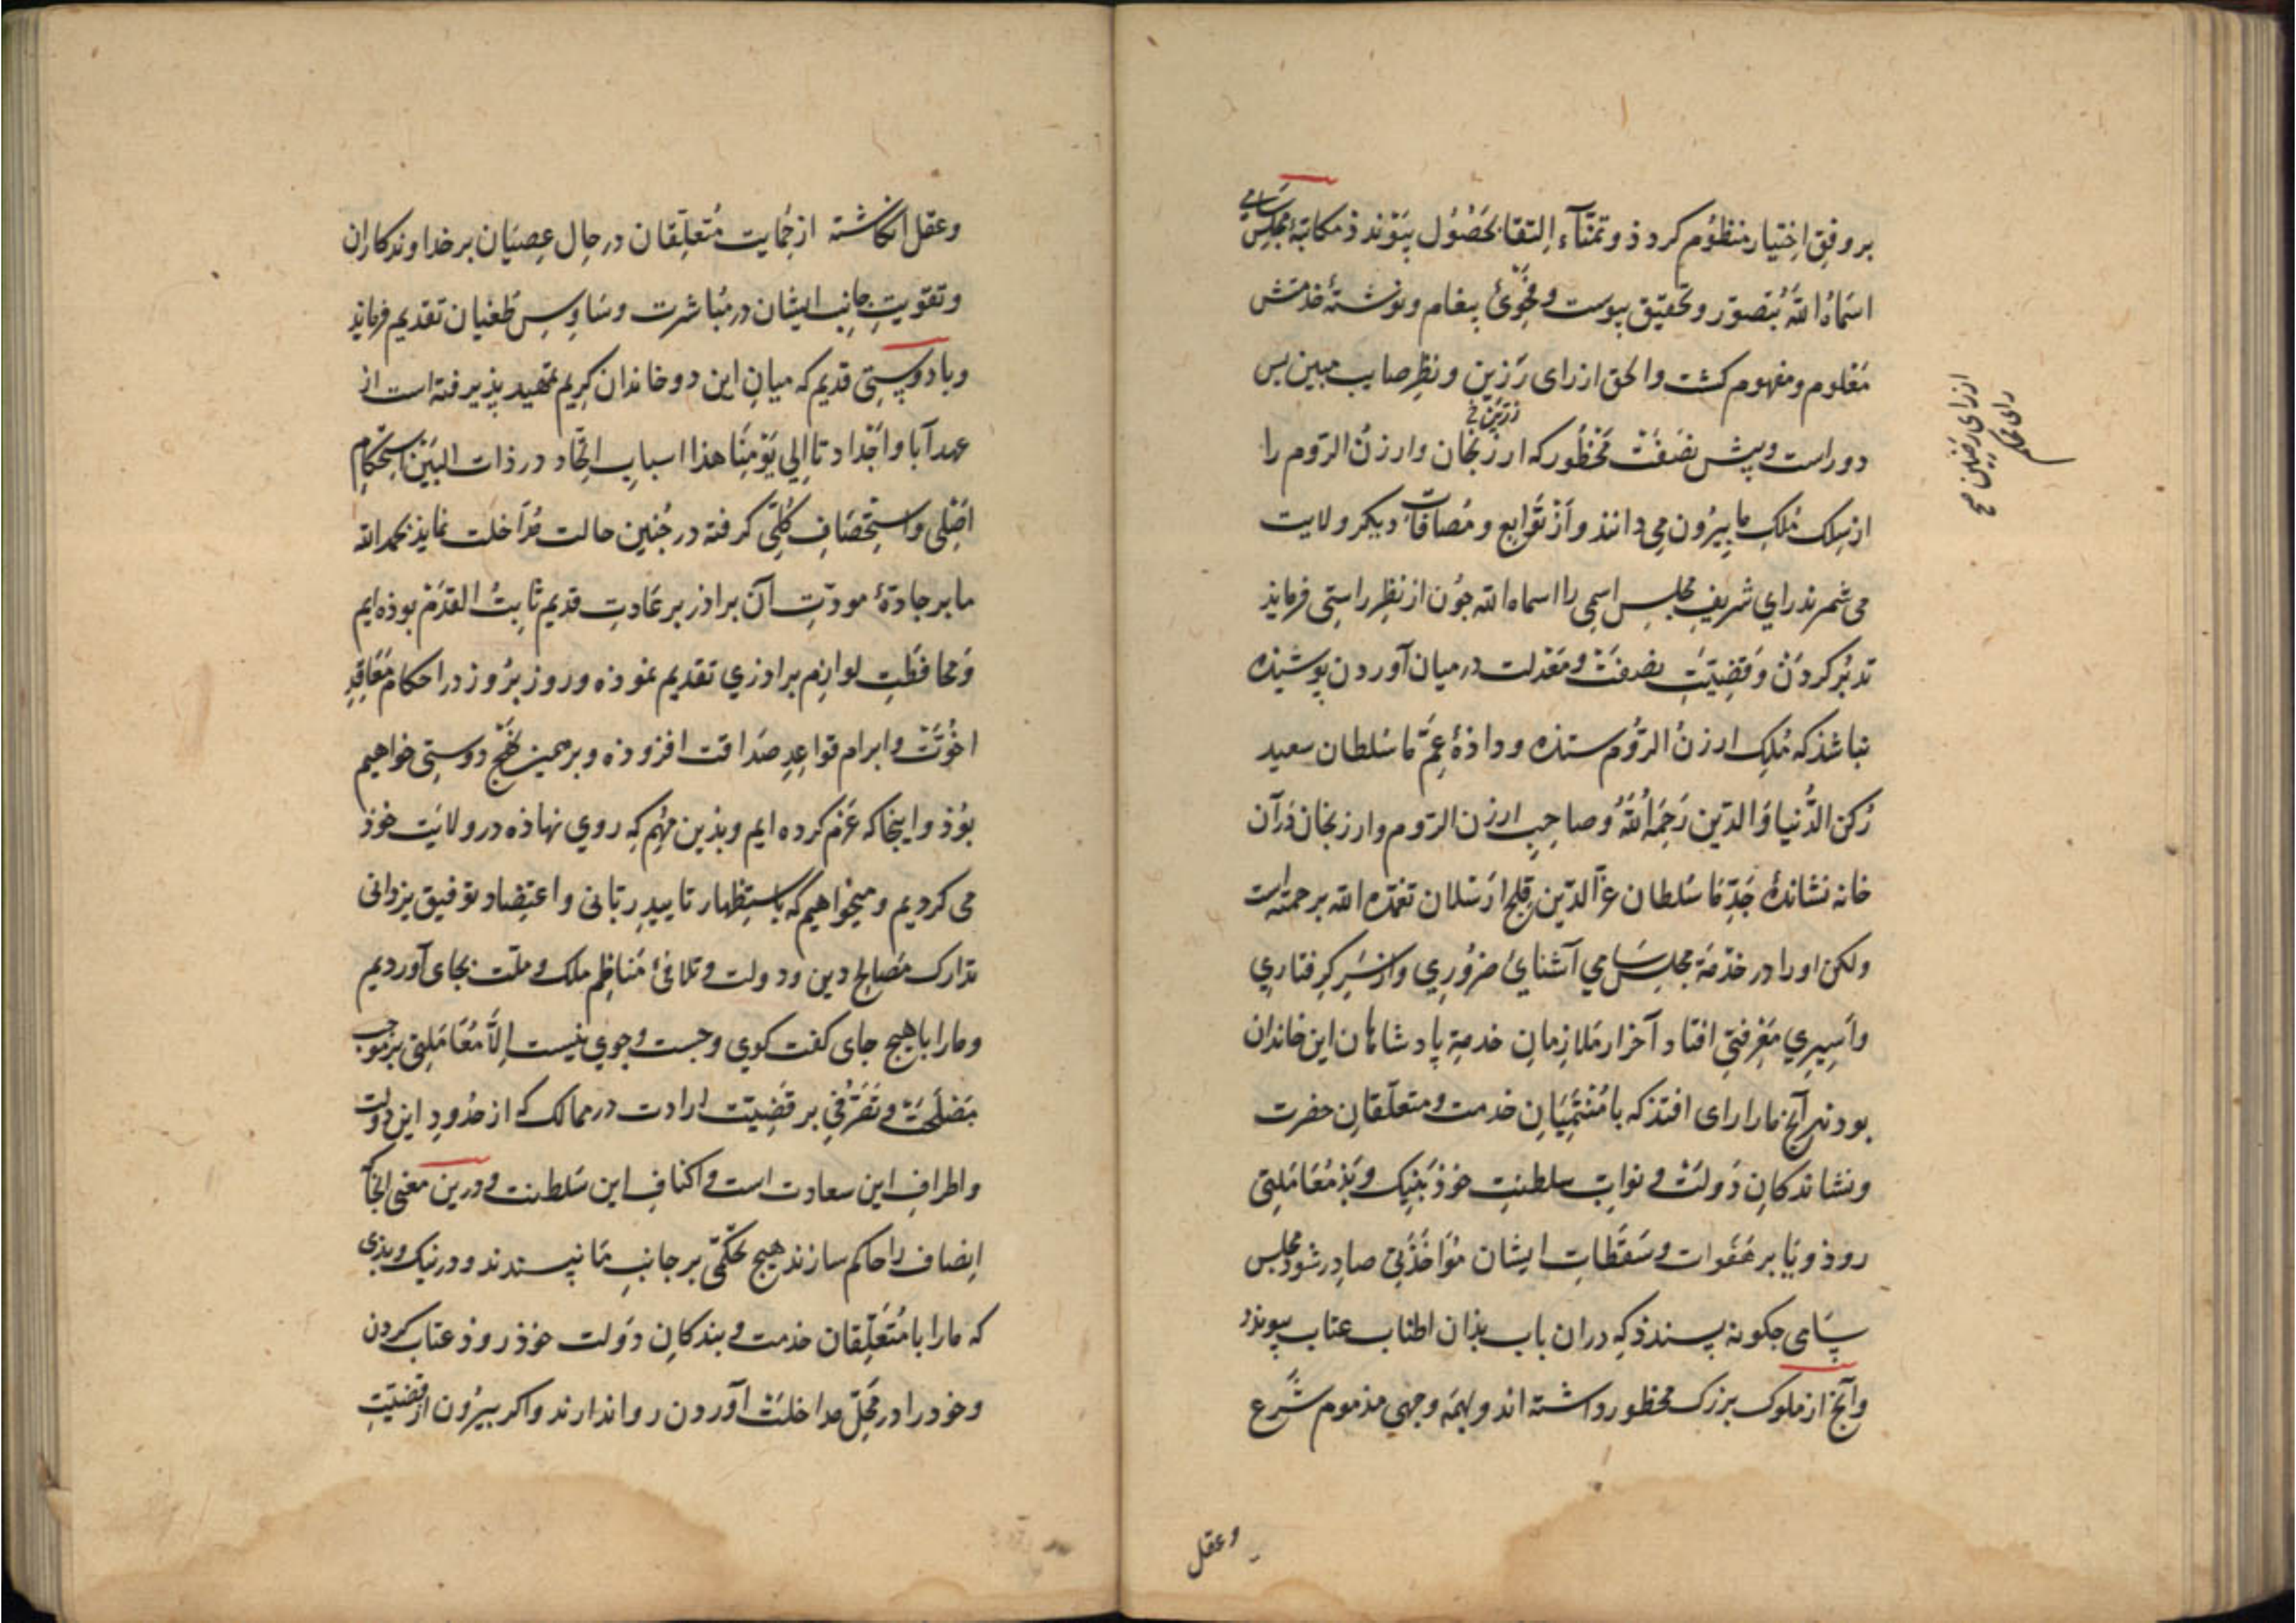 بر وفق اختیار منظوم کردذ و تمنّآء التقا بحصُول پیوندذ مکاتبهٔ مجلس سامی
اسماهُ اللّه بتصوّر و تحقیق پیوست و فحویٔ پیغام و نوشتهٔ خدمتش
معلوم و مفهوم کشت و الحق از رای رزین و نظر صایب مبین بس
دور است و پیش نصفت محظور که ارزنجان و ارزن الرّوم را
از سلک مُلک ما بیرون می دانند و از توابع و مُضافات دیکر ولایت
می شمرند رای شریف مجلس اسمی را اسماه اللّه جون از نظر راستی فرمایذ
تدبّر کردن و قضیّت نصفت و معدلت در میان آوردن پوشیذه
نباشذ که مُلک ارزن الرّوم ستذه و داذهٔ عمّ ما سُلطان سعید
رکن الدُّنیا و الدّین رحمه اللّهُ و صاحب ارزن الرّوم و ارزنجان در آن
خانه نشاندهٔ جدّ ما سُلطان عزّ الدّین قلج ارسلان تغمّده اللّه برحمته است
ولکن او را در خدمة مجلس سامی آشنایٔ ضروری و از سر کرفتاری
و اسیری معرفتی افتاد آخر از ملازمان خدمة پادشاهان این خاندان
بودند هر آنج ما را رای افتذ که با مُنتمیان خدمت و متعلّقان حضرت
و نشاندکان دولت و نواب سلطنت خوذ بنیک و بذ معاملتی
روذ و یا بر هفوات و سقطات ایشان مؤاخذتی صادر شود مجلس
سامی جکونه پسندذ که دران باب بذان اطناب عتاب پیوندذ
و آنج از ملوک بزرک محظور داشته اند و بهمه وجهی مذموم شرع
ارزنجان خ
از رای رزین صح
رای محکم
و عقل
و عقل انکاشته از حمایت متعلّقان در حال عصیان بر خداوندکاران
و تقویت جانب ایشان در مباشرت وساوس طغیان تقدیم فرمایذ
و با دوستی قدیم که میان این دو خاندان کریم تمهید پذیرفته است از
عهد آبا و اجداد تا الی یومنا هذا اسباب اتّحاد در ذات البین استحکام
اصلی و استحصاف کلّی کرفته در جُنین حالت مداخلت نمایذ بحمد اللّه
ما بر جادّهٔ مودّت آن براذر بر عادت قدیم ثابت القدم بوذه ایم
و محافظت لوازم براذری تقدیم نموذه و روز بروز در احکام معاقد
اخوّت و ابرام قواعد صداقت افزوذه و بر همین نهج دوستی خواهیم
بوذ و اینجا که عزم کرده ایم و بذین مهم که روی نهاذه در ولایت خوذ
می کردیم و میخواهیم که باستظهار تایید ربّانی و اعتضاد توفیق یزدانی
تدارک مصالح دین و دولت و تلافیٔ مناظم ملک و ملّت بجای آوردیم
و ما را با هیج جای کفت کوی و جست و جوی نیست الّا معاملتی بر موجب
مصلحت و تصرّفی بر قضیّت ارادت در ممالک که از حدود این دولت
و اطراف این سعادت است و اکناف این سلطنت و درین معنی الحآ
انصاف را حاکم سازند هیج تحکّمی بر جانب ما نپسندند و در نیک و بذی
که ما را با متعلّقان خدمت و بندکان دولت خوذ روذ عتاب کردن
و خود را در محلّ مداخلت آوردن روا ندارند و اکر بیرون از قضیّت